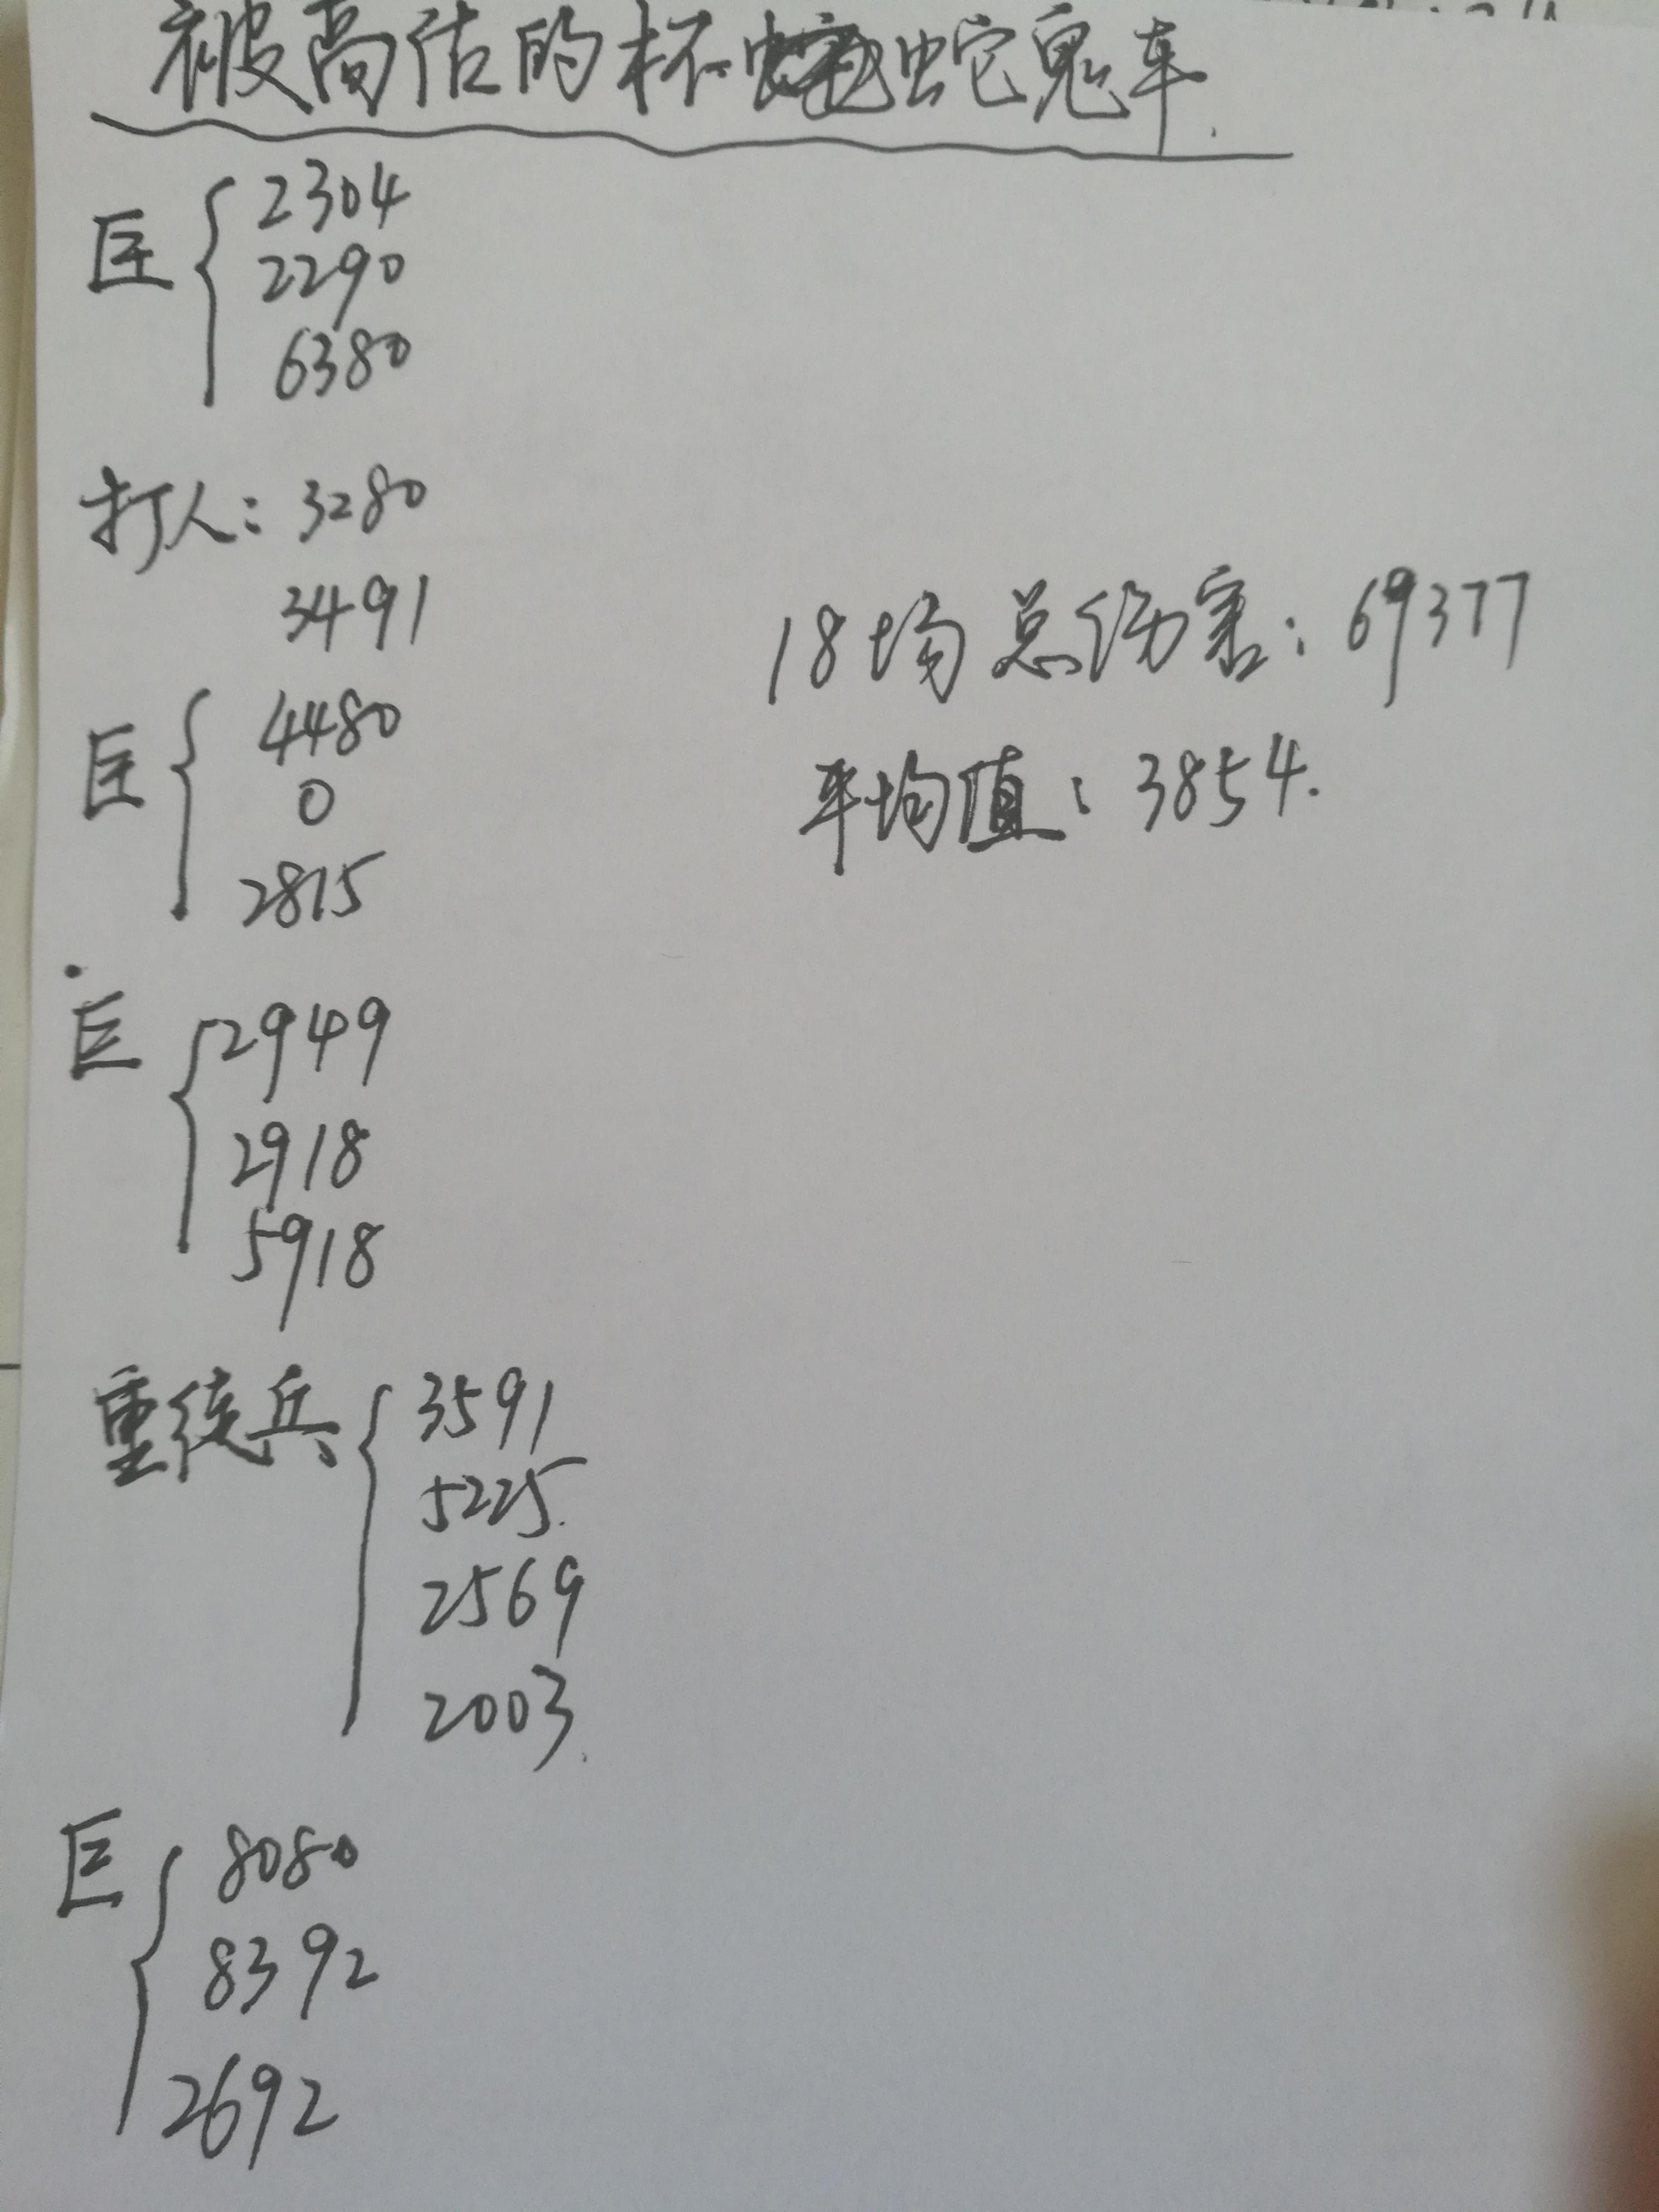 被高估的杯蛇鬼车.
巨
2304
2290
6380
打人: 3280
3491
巨
4480
0
2815
巨
2949
2918
5918
重绕兵
3591
5225.
2569
2003.
巨
8080
8392
2692
18场总伤害: 69377
平均值: 3854.